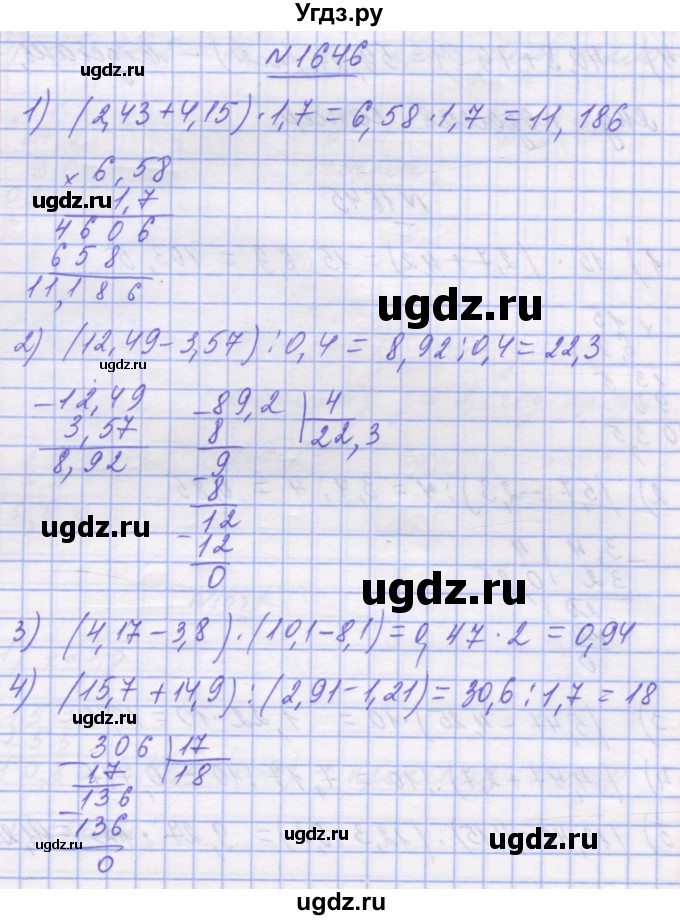 Угдз.ру
N 1646
ugdz.ru
1) (2,43+4,15)·1,7=6,58·1,7=11,186
× 6,58
ugdz.ru 1,7
4606
658
11,186
ugdz.ru
2) (12,49-3,57):0,4=8,92:0,4=22,3
ugdz.ru
-12,49 -89,2 4
3,57 8 22,3
8,92 9
-8
ugdz.ru 12
-12
ugdz.ru
0
3) (4,17-3,8)·(10,1-8,1)=0,47·2=0,94
4) (15,7+14,9):(2,91-1,21)=30,6:1,7=18
ugdz.ru
-306 17
17 18
136
-136
ugdz.ru ugdz.ru
0
ugdz.ru